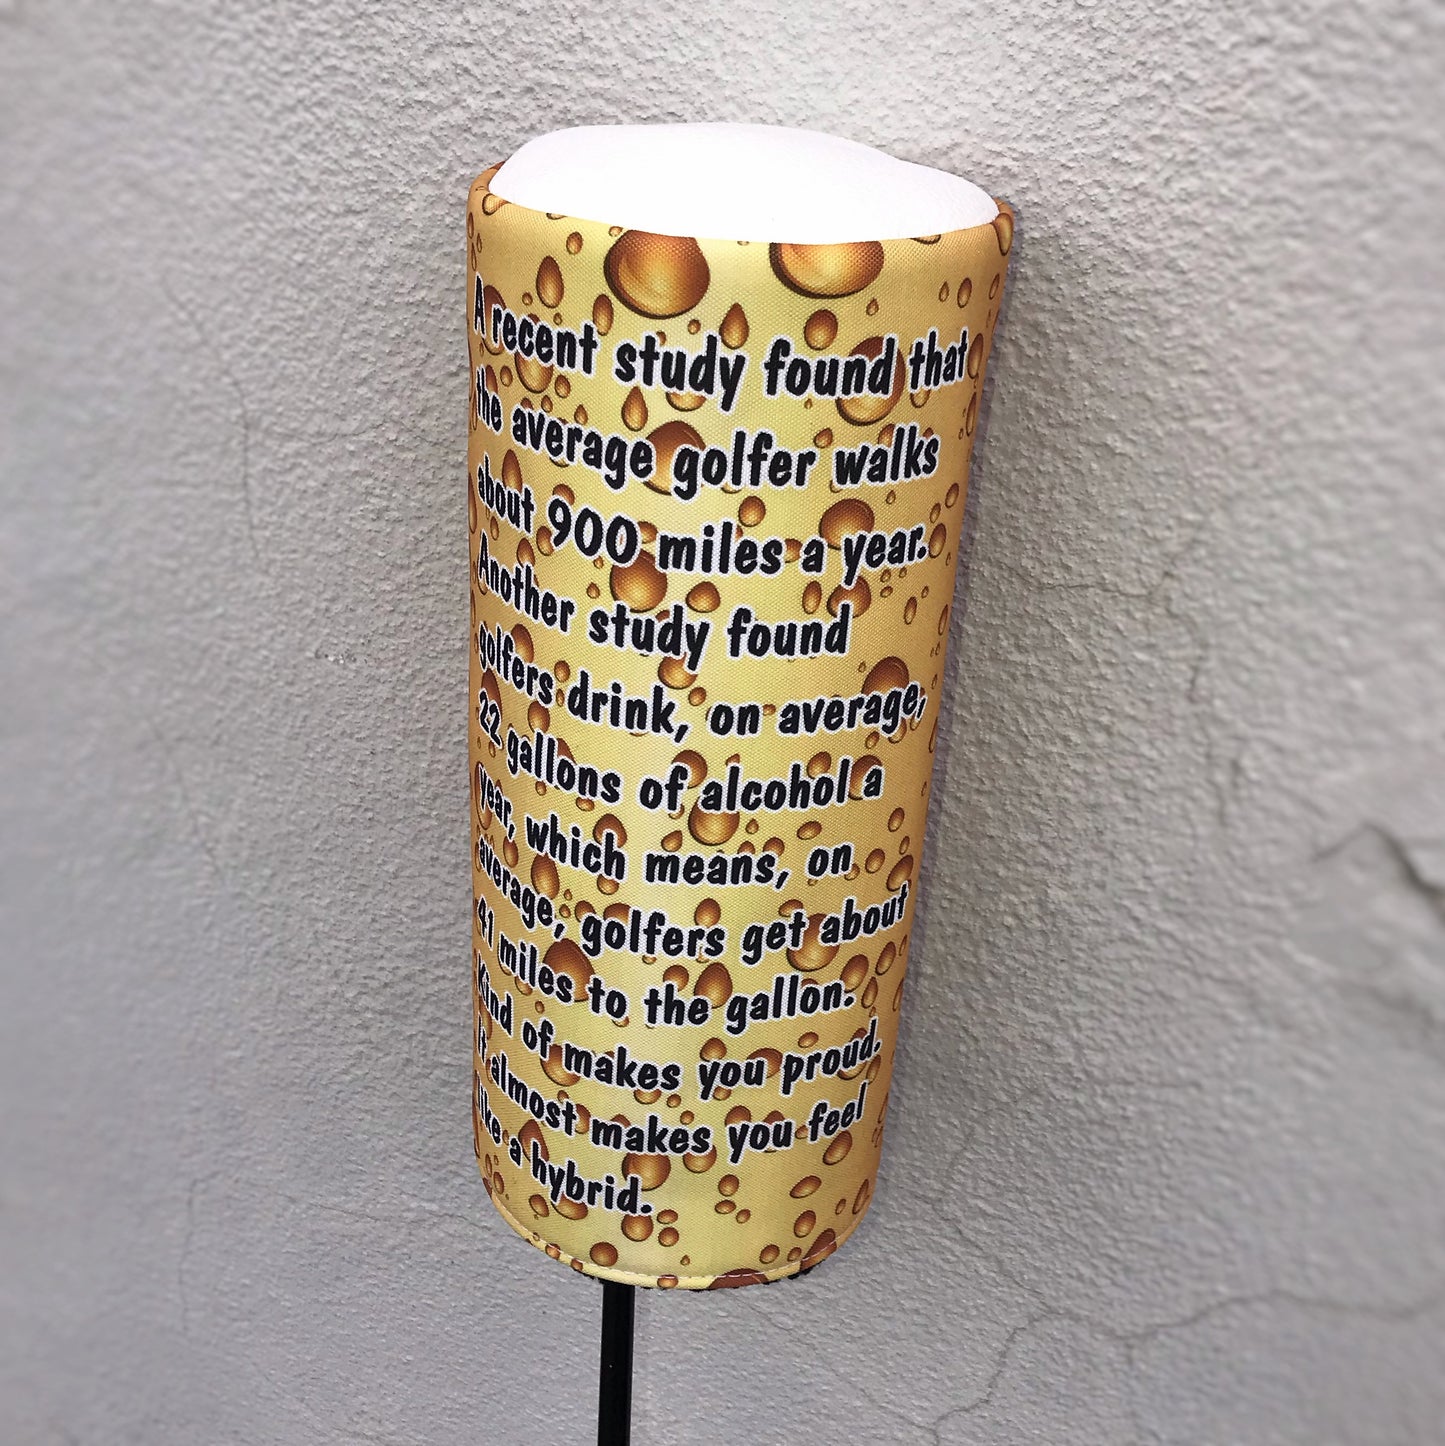 A recent study found that
the average golfer walks
about 900 miles a year.
Another study found
golfers drink, on average,
22 gallons of alcohol a
year, which means, on
average, golfers get about
41 miles to the gallon.
Kind of makes you proud.
It almost makes you feel
like a hybrid.